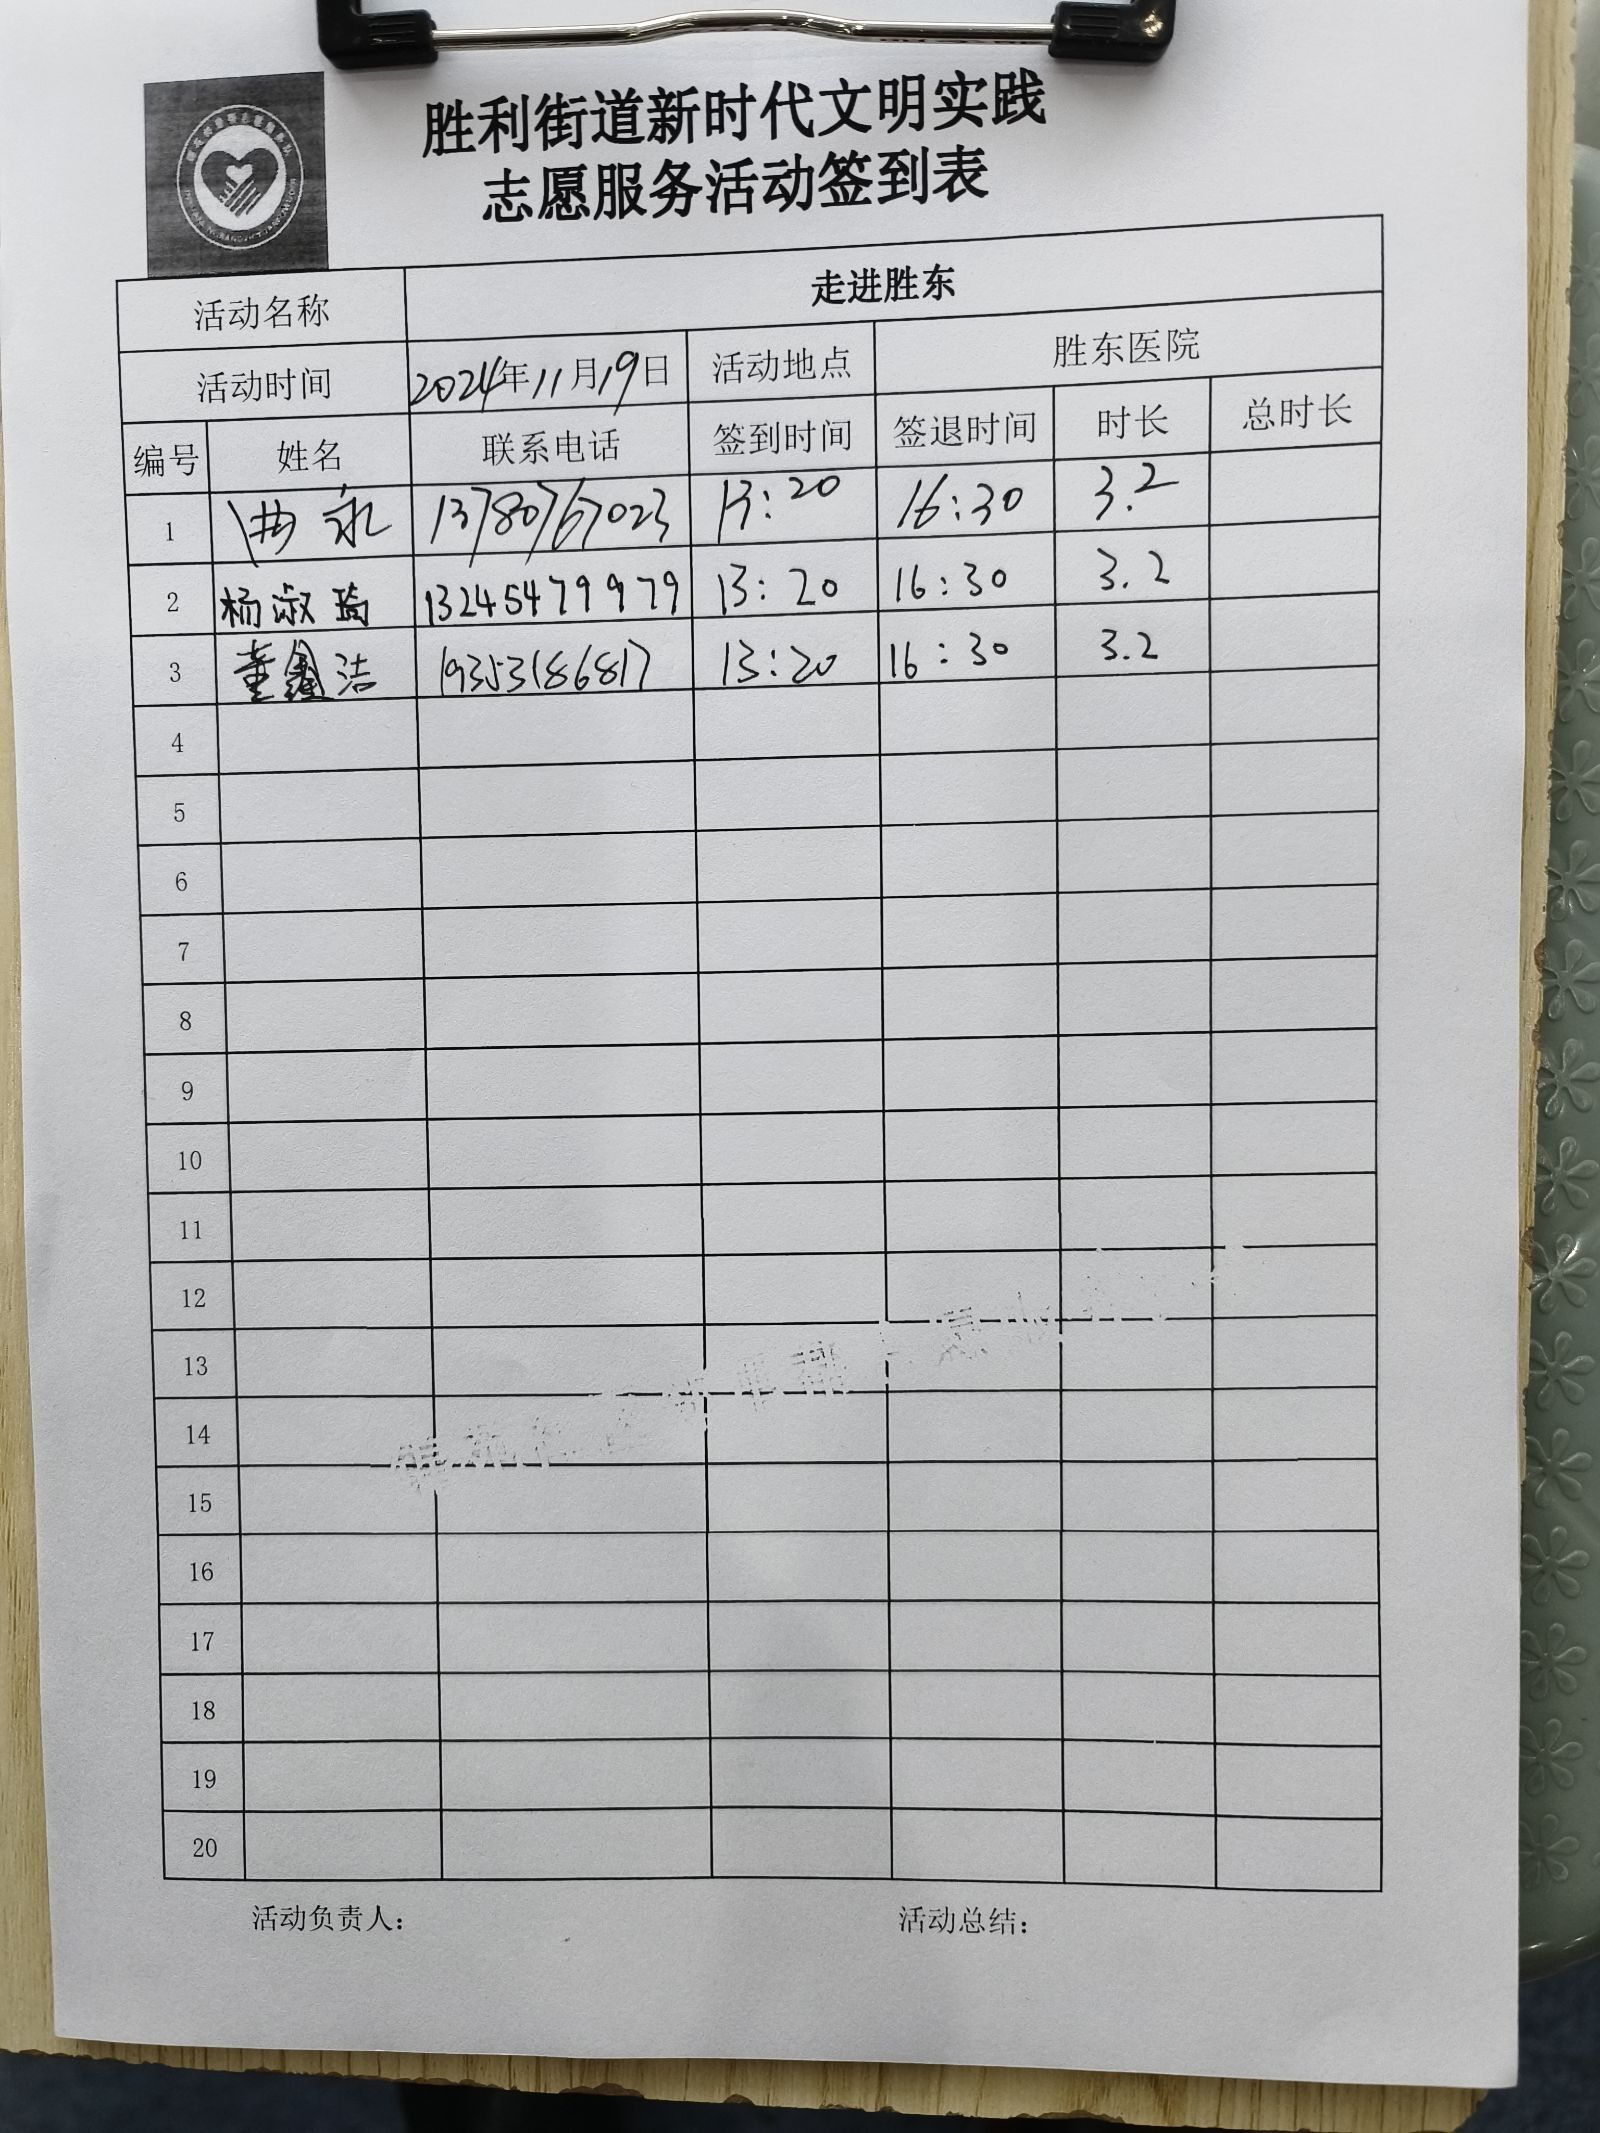 胜利街道新时代文明实践
志愿服务活动签到表
活动名称 走进胜东
活动时间 2024年11月19日 活动地点 胜东医院
编号 姓名 联系电话 签到时间 签退时间 时长 总时长
1 曲永 13780767023 13:20 16:30 3.2
2 杨淑琦 13245479979 13:20 16:30 3.2
3 董鑫洁 19353186817 13:20 16:30 3.2
4
5
6
7
8
9
10
11
12
13
14
15
16
17
18
19
20
活动负责人： 活动总结：